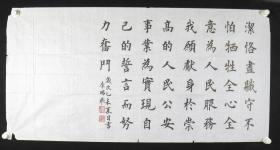 潔恪盡職守不
怕牺牲全心全
意為人民服務
我願獻身於崇
高的人民公安
事業為實現自
己的誓言而努
力奮鬥